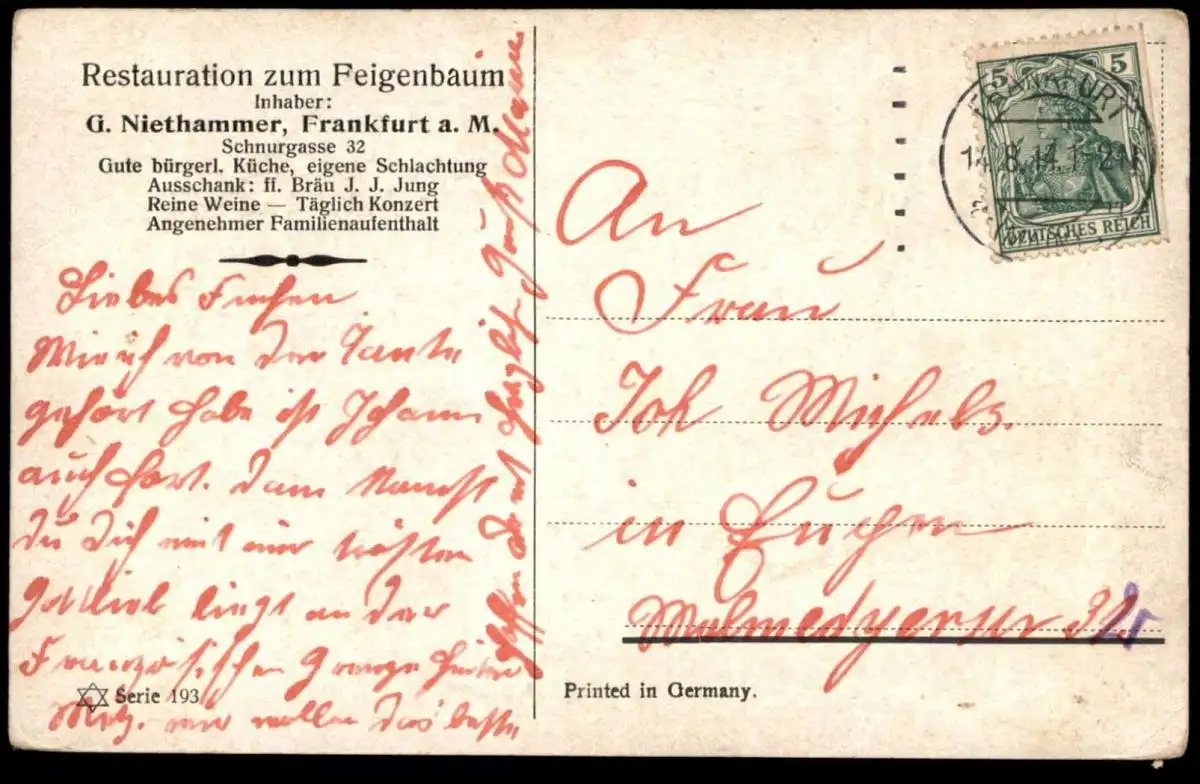 Restauration zum Feigenbaum
Inhaber:
G. Niethammer, Frankfurt a. M.
Schnurgasse 32
Gute bürgerl. Küche, eigene Schlachtung
Ausschank: ff. Bräu J. J. Jung
Reine Weine — Täglich Konzert
Angenehmer Familienaufenthalt
Liebes
Wie ich von der Tante
gehört habe ist Johann
auch fort. Dann kannst
du dich mit mir trösten
Gottlieb liegt an der
Französischen Grenze hinter
Metz. wir wollen das beste
hoffen
Serie 193
An
Frau
Joh Michels.
in Eupen
Malmedyerstr 32
Printed in Germany.
5 5
DEUTSCHES REICH
FRANKFURT
14.8.14.